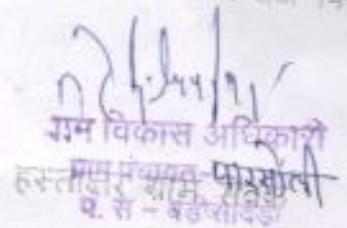 ग्राम विकास अधिकारी
ग्राम पंचायत-पारसोली
हस्ताक्षर ग्राम सेवक
पं. स - बड़ीसादड़ी